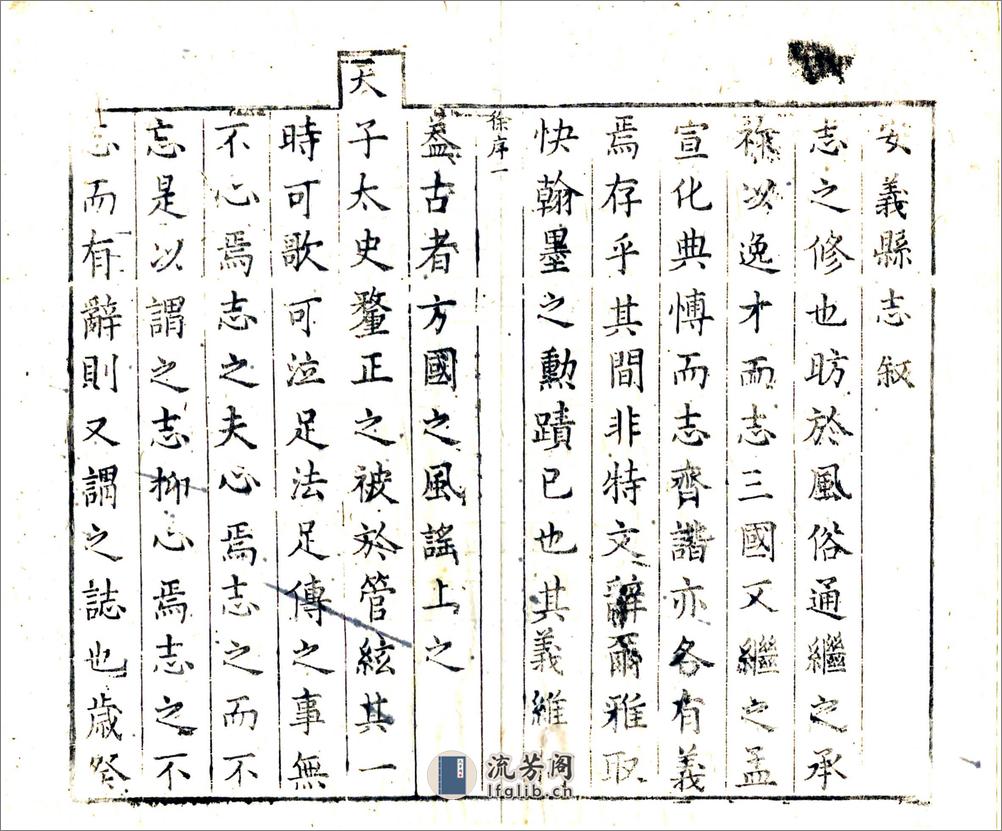 安義縣志叙
志之修也昉於風俗通繼之承
祚以逸才而志三國又繼之孟
宣化典愽而志齊諧亦各有義
焉存乎其間非特文辭爾雅取
快翰墨之勲蹟已也其義維
徐序一
葢古者方國之風謡上之
天
子太史釐正之被於管絃其一
時可歌可泣足法足傳之事無
不心焉志之夫心焉志之而不
忘是以謂之志抑心焉志之不
忘而有辭則又謂之誌也歳癸
流芳阁
lfglib.ch